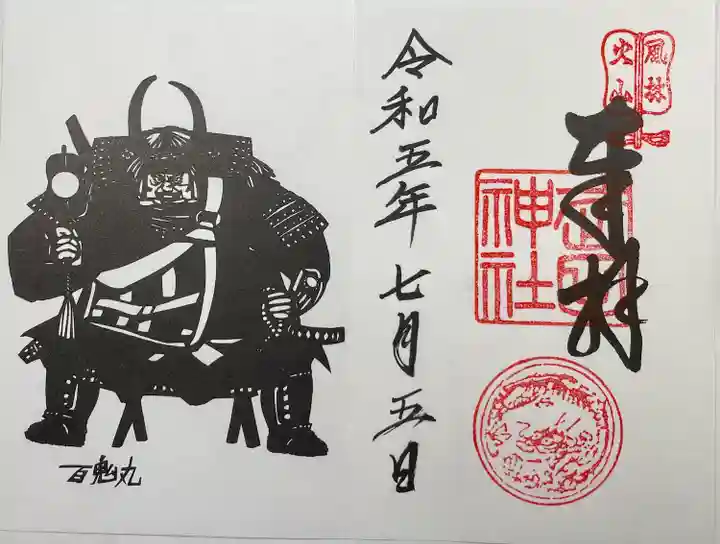 風林
火山
奉拝
武田
神社
令和五年 七月五日
百鬼丸